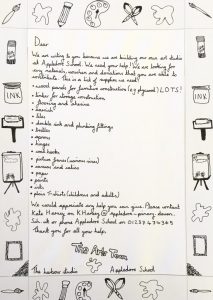 Dear
We are writing to you because we are building our own art studio
at Appledore School. We need your help! We are looking for
any materials, vouchers and donations that you are able to
contribute. This is a list of supplies we need:
• wood panels for furniture construction (eg plywood) LOTS!
• timber for storage construction
• flooring and
•
• tiles
• double sink and plumbing fittings
• bottles
• aprons
• hinges
• coat hooks
• picture frames (various sizes)
• canvas and
• paper
• paint
• inks
• plain T-shirts (children and adults)
We would appreciate any help you can give. Please contact
Kate Harvey on K.Harvey@appledore-primary.devon.
sch.uk or phone Appledore School on 01237 474365
Thank you for all your help.
The Arts Team
The harbour studio
Appledore School
INK
INK